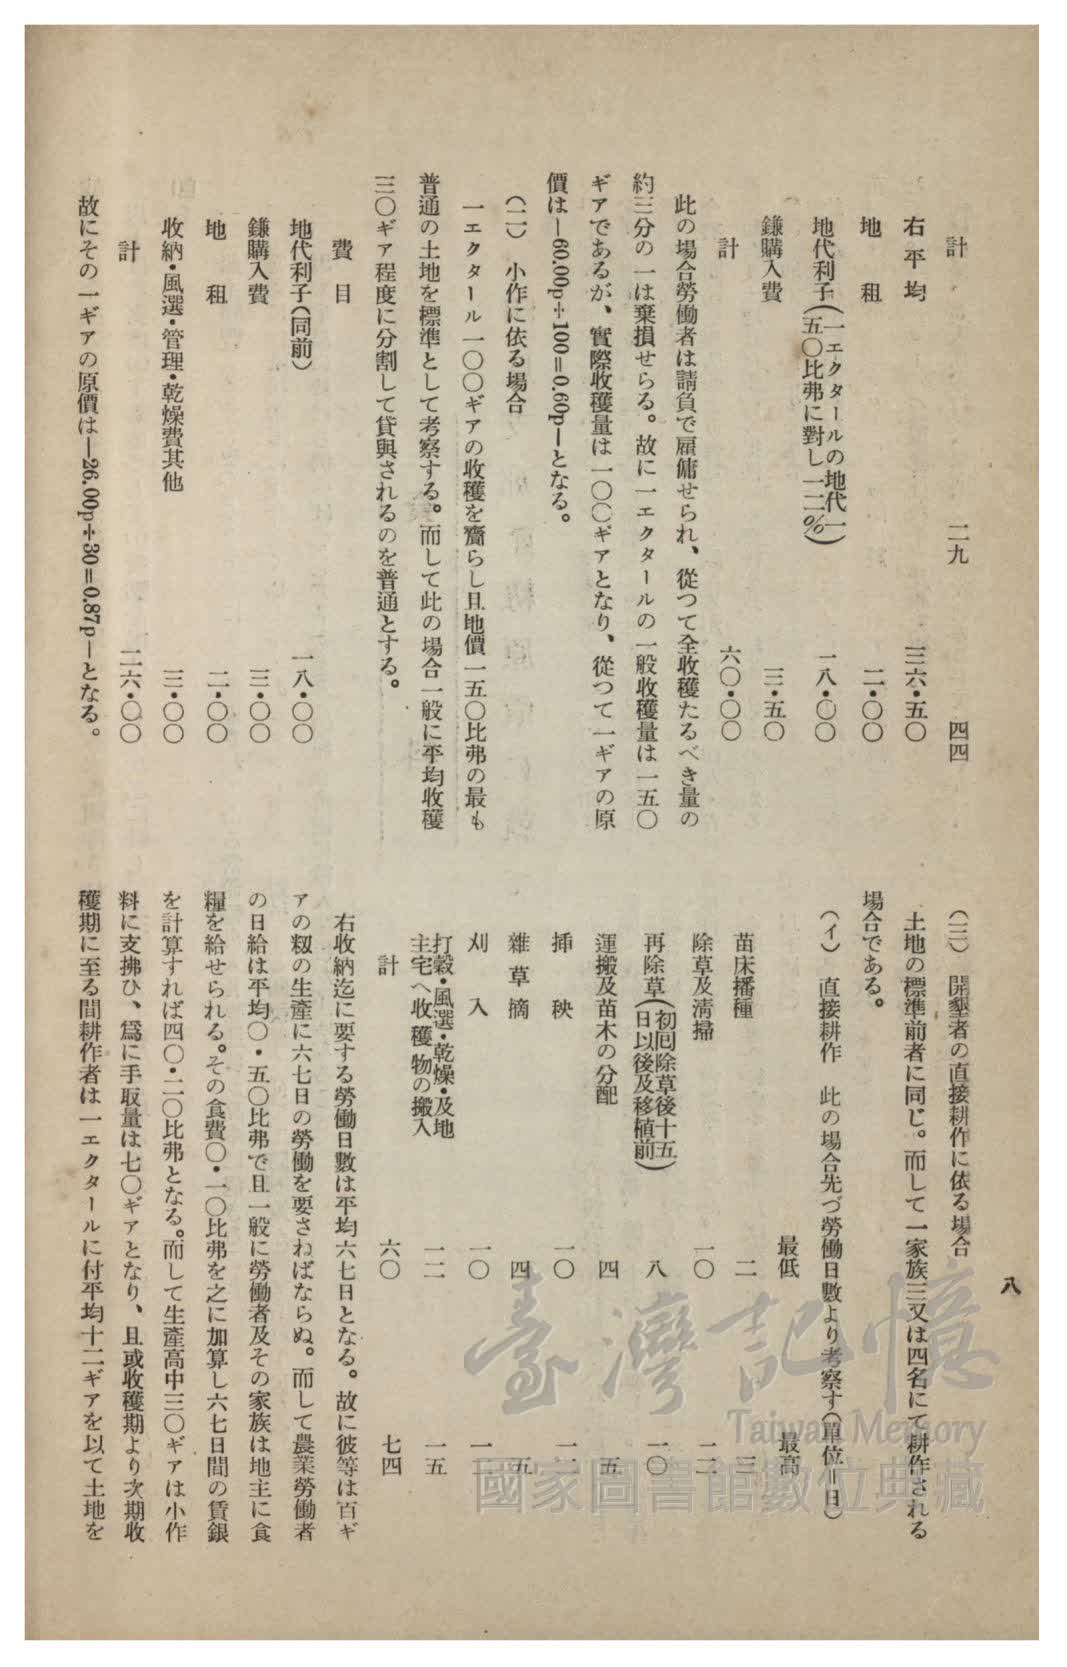 八
計　二九　四四
右平均　三六・五〇
地租　二・〇〇
地代利子(一エクタールの地代一
五〇比弗に對し一二%)　一八・〇〇
鎌購入費　三・五〇
計　六〇・〇〇
此の場合勞働者は請負で雇傭せられ、從つて全收穫たるべき量の
約三分の一は棄損せらる。故に一エクタールの一般收穫量は一五〇
ギアであるが、實際收穫量は一〇〇ギアとなり、從つて一ギアの原
價は—60.00p÷100=0.60p—となる。
(二)　小作に依る場合
一エクタール一〇〇ギアの收穫を齎らし且地價一五〇比弗の最も
普通の土地を標準として考察する。而して此の場合一般に平均收穫
三〇ギア程度に分割して貸與されるのを普通とする。
費目
地代利子(同前)　一八・〇〇
鎌購入費　三・〇〇
地租　二・〇〇
收納・風選・管理・乾燥費其他　三・〇〇
計　二六・〇〇
故にその一ギアの原價は—26.00p÷30=0.87p—となる。
(三)　開墾者の直接耕作に依る場合
土地の標準前者に同じ。而して一家族三又は四名にて耕作される
場合である。
(イ)　直接耕作　此の場合先づ勞働日數より考察す(單位=日)
最低　最高
苗床播種　二　三
除草及淸掃　一〇　一二
再除草(初回除草後十五
日以後及移植前)　八　一〇
運搬及苗木の分配　四　五
挿秧　一〇　一二
雜草摘　四　五
刈入　一〇　一二
打穀・風選・乾燥・及地
主宅へ收穫物の搬入　一二　一五
計　六〇　七四
右收納迄に要する勞働日數は平均六七日となる。故に彼等は百ギ
アの籾の生產に六七日の勞働を要さねばならぬ。而して農業勞働者
の日給は平均〇・五〇比弗で且一般に勞働者及その家族は地主に食
糧を給せられる。その食費〇・一〇比弗を之に加算し六七日間の賃銀
を計算すれば四〇・二〇比弗となる。而して生產高中三〇ギアは小作
料に支拂ひ、爲に手取量は七〇ギアとなり、且或收穫期より次期收
穫期に至る間耕作者は一エクタールに付平均十二ギアを以て土地を
臺灣記憶
Taiwan Memory
國家圖書館數位典藏